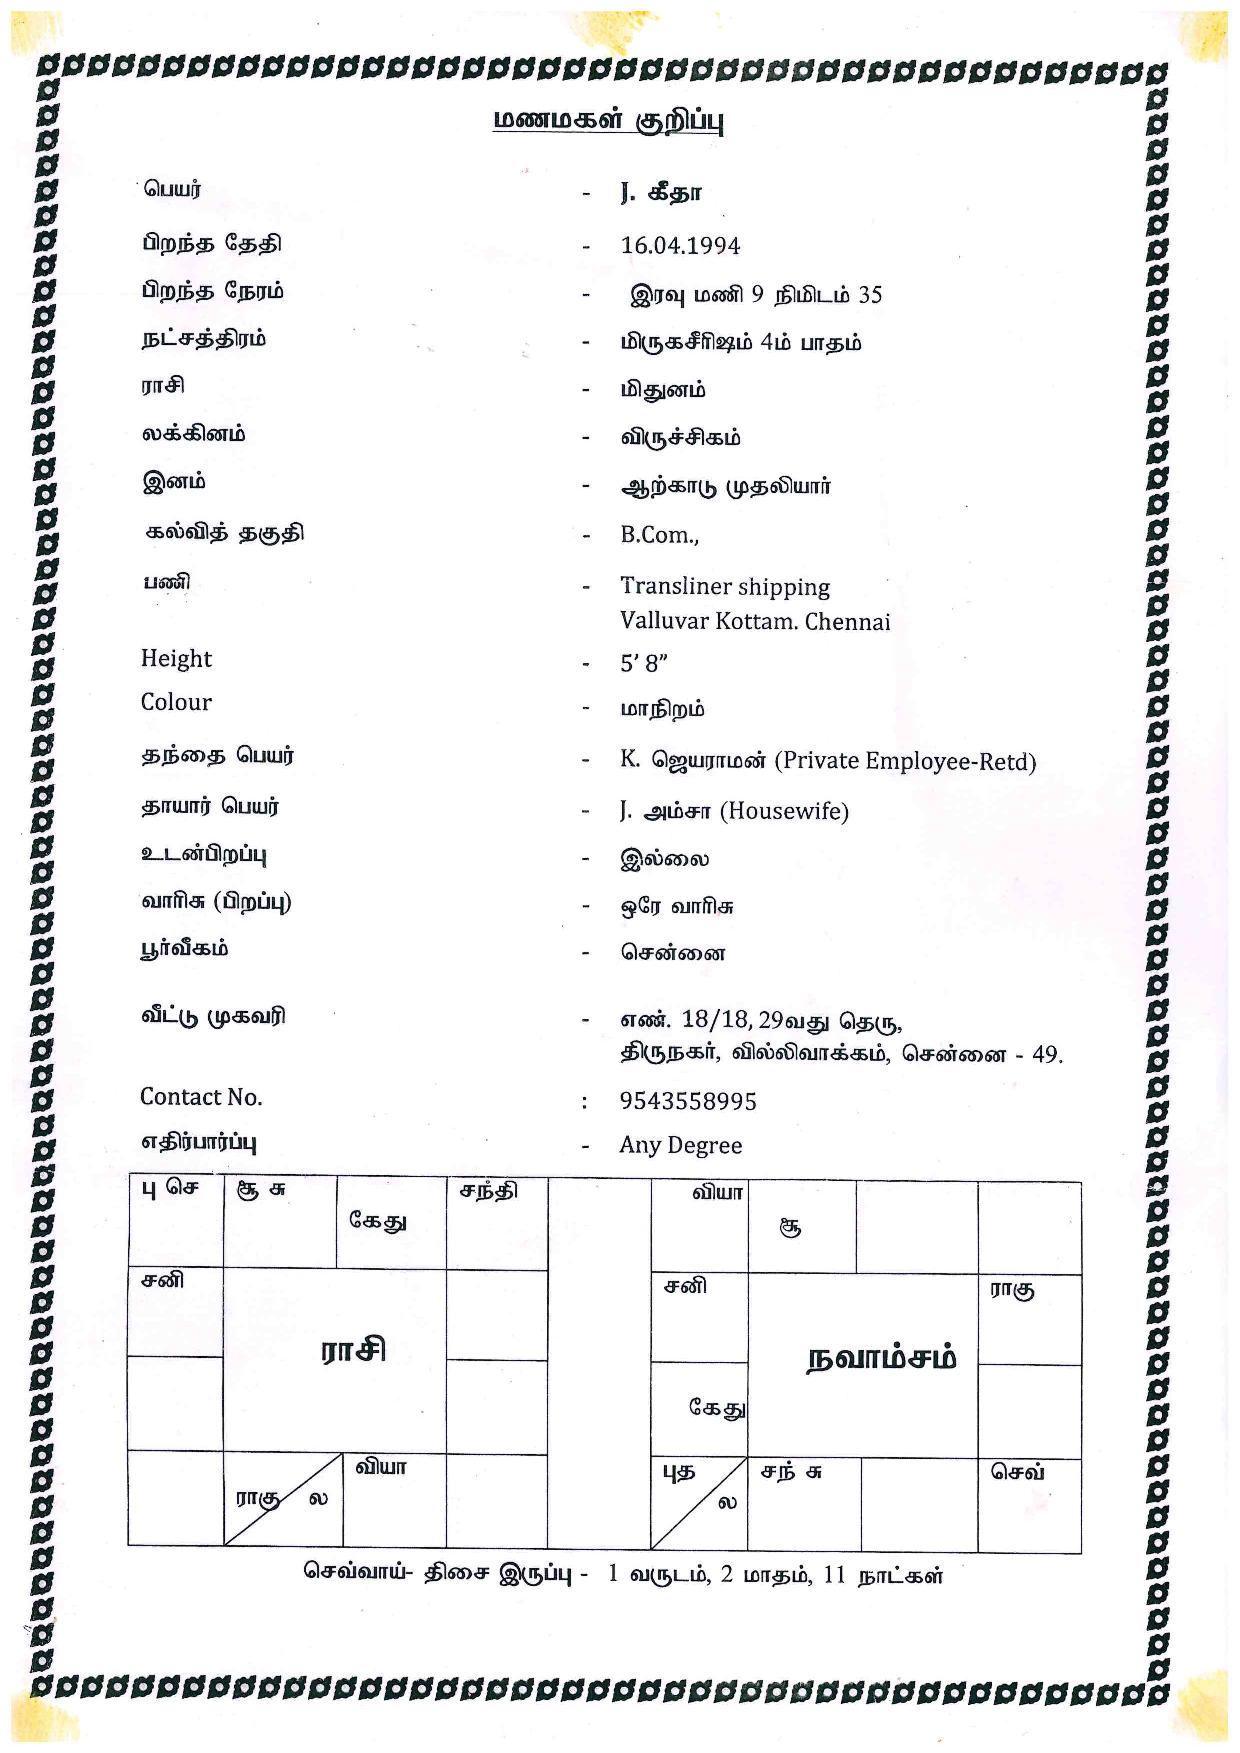 மணமகள் குறிப்பு
பெயர் - J. கீதா
பிறந்த தேதி - 16.04.1994
பிறந்த நேரம் - இரவு மணி 9 நிமிடம் 35
நட்சத்திரம் - மிருகசீரிஷம் 4ம் பாதம்
ராசி - மிதுனம்
லக்கினம் - விருச்சிகம்
இனம் - ஆற்காடு முதலியார்
கல்வித் தகுதி - B.Com.,
பணி - Transliner shipping
Valluvar Kottam. Chennai
Height - 5’ 8”
Colour - மாநிறம்
தந்தை பெயர் - K. ஜெயராமன் (Private Employee-Retd)
தாயார் பெயர் - J. அம்சா (Housewife)
உடன்பிறப்பு - இல்லை
வாரிசு (பிறப்பு) - ஒரே வாரிசு
பூர்வீகம் - சென்னை
வீட்டு முகவரி - எண். 18/18, 29வது தெரு,
திருநகர், வில்லிவாக்கம், சென்னை - 49.
Contact No. : 9543558995
எதிர்பார்ப்பு - Any Degree
பு செ சூ சு கேது சந்தி
சனி
ராசி
ராகு ல வியா
வியா சூ
சனி ராகு
நவாம்சம்
கேது
புத ல சந் சு செவ்
செவ்வாய்- திசை இருப்பு - 1 வருடம், 2 மாதம், 11 நாட்கள்